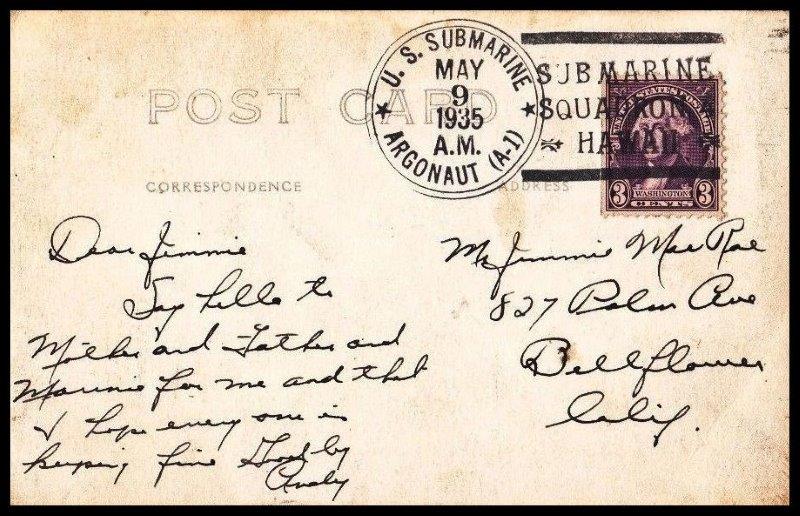 POST CARD
U. S. SUBMARINE
MAY
9
1935
A.M.
ARGONAUT (A-1)
SUBMARINE
SQUADRON 4
HAWAII
UNITED STATES POSTAGE
3 WASHINGTON 3
CENTS
CORRESPONDENCE
ADDRESS
Dear Jimmie
Say hello to
Mother and Father and
for me and that
I hope every one is
keeping fine Good by
Andy
Mr Jimmie Mac Rae
827 Palm Ave
Bellflower
Calif.